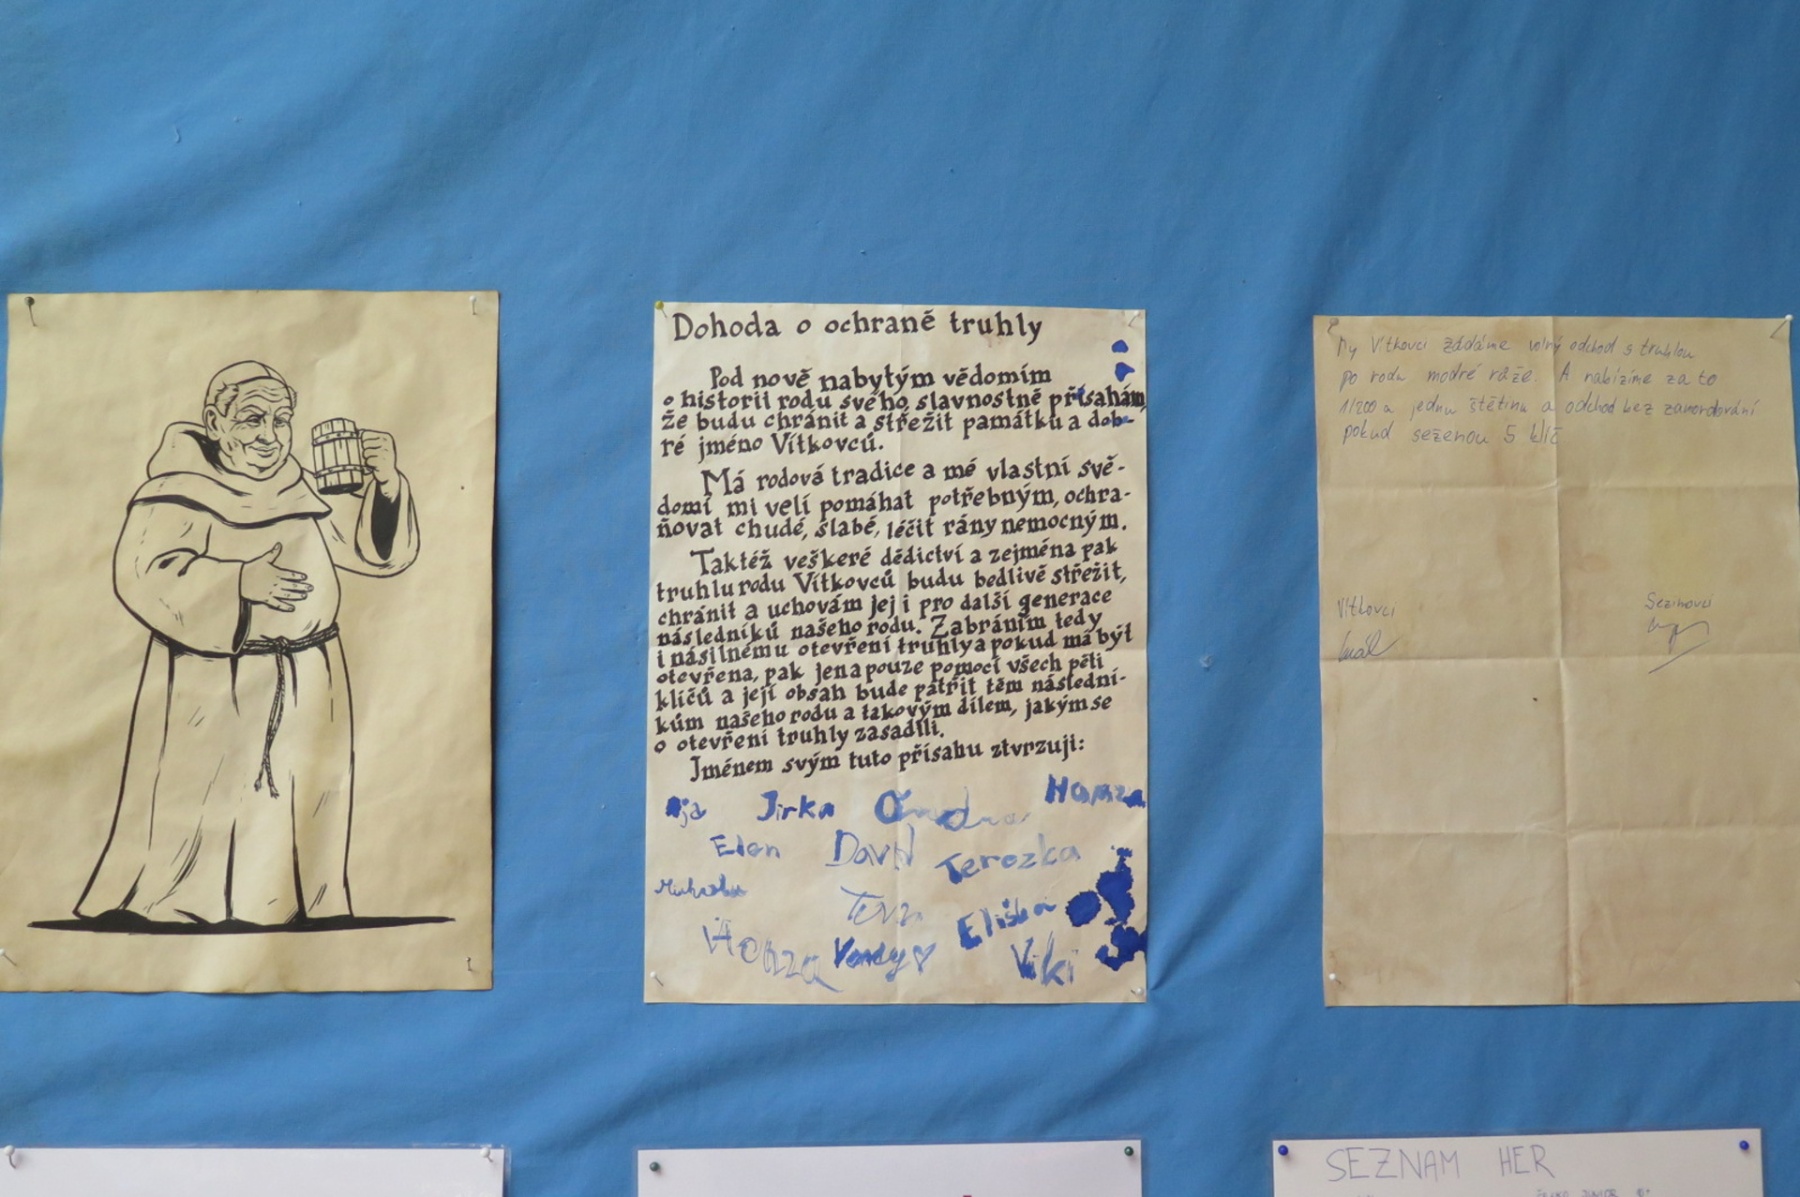 Dohoda o ochraně truhly
Pod nově nabytým vědomím
o historii rodu svého, slavnostně přísahám,
že budu chránit a střežit památku a dob-
ré jméno Vítkovců.
Má rodová tradice a mé vlastní svě-
domí mi velí pomáhat potřebným, ochra-
ňovat chudé, slabé, léčit rány nemocným.
Taktéž veškeré dědictví a zejména pak
truhlu rodu Vítkovců budu bedlivě střežit,
chránit a uchovám jej i pro další generace
následníků našeho rodu. Zabráním tedy
i násilnému otevření truhly a pokud má být
otevřena, pak jen a pouze pomocí všech pěti
klíčů a její obsah bude patřit těm následní-
kům našeho rodu a takovým dílem, jakým se
o otevření truhly zasadili.
Jménem svým tuto přísahu ztvrzuji:
Jirka Ondra Honza
Elen David Terezka
Eliška
Honza Vendy Viki
My Vítkovci žádáme volný odchod s truhlou
po rodu modré růže. A nabízíme za to
1/200 a jednu štětinu a odchod bez zavordování
pokud seženou 5 klíč
Vítkovci Sezimovci
Král
SEZNAM HER